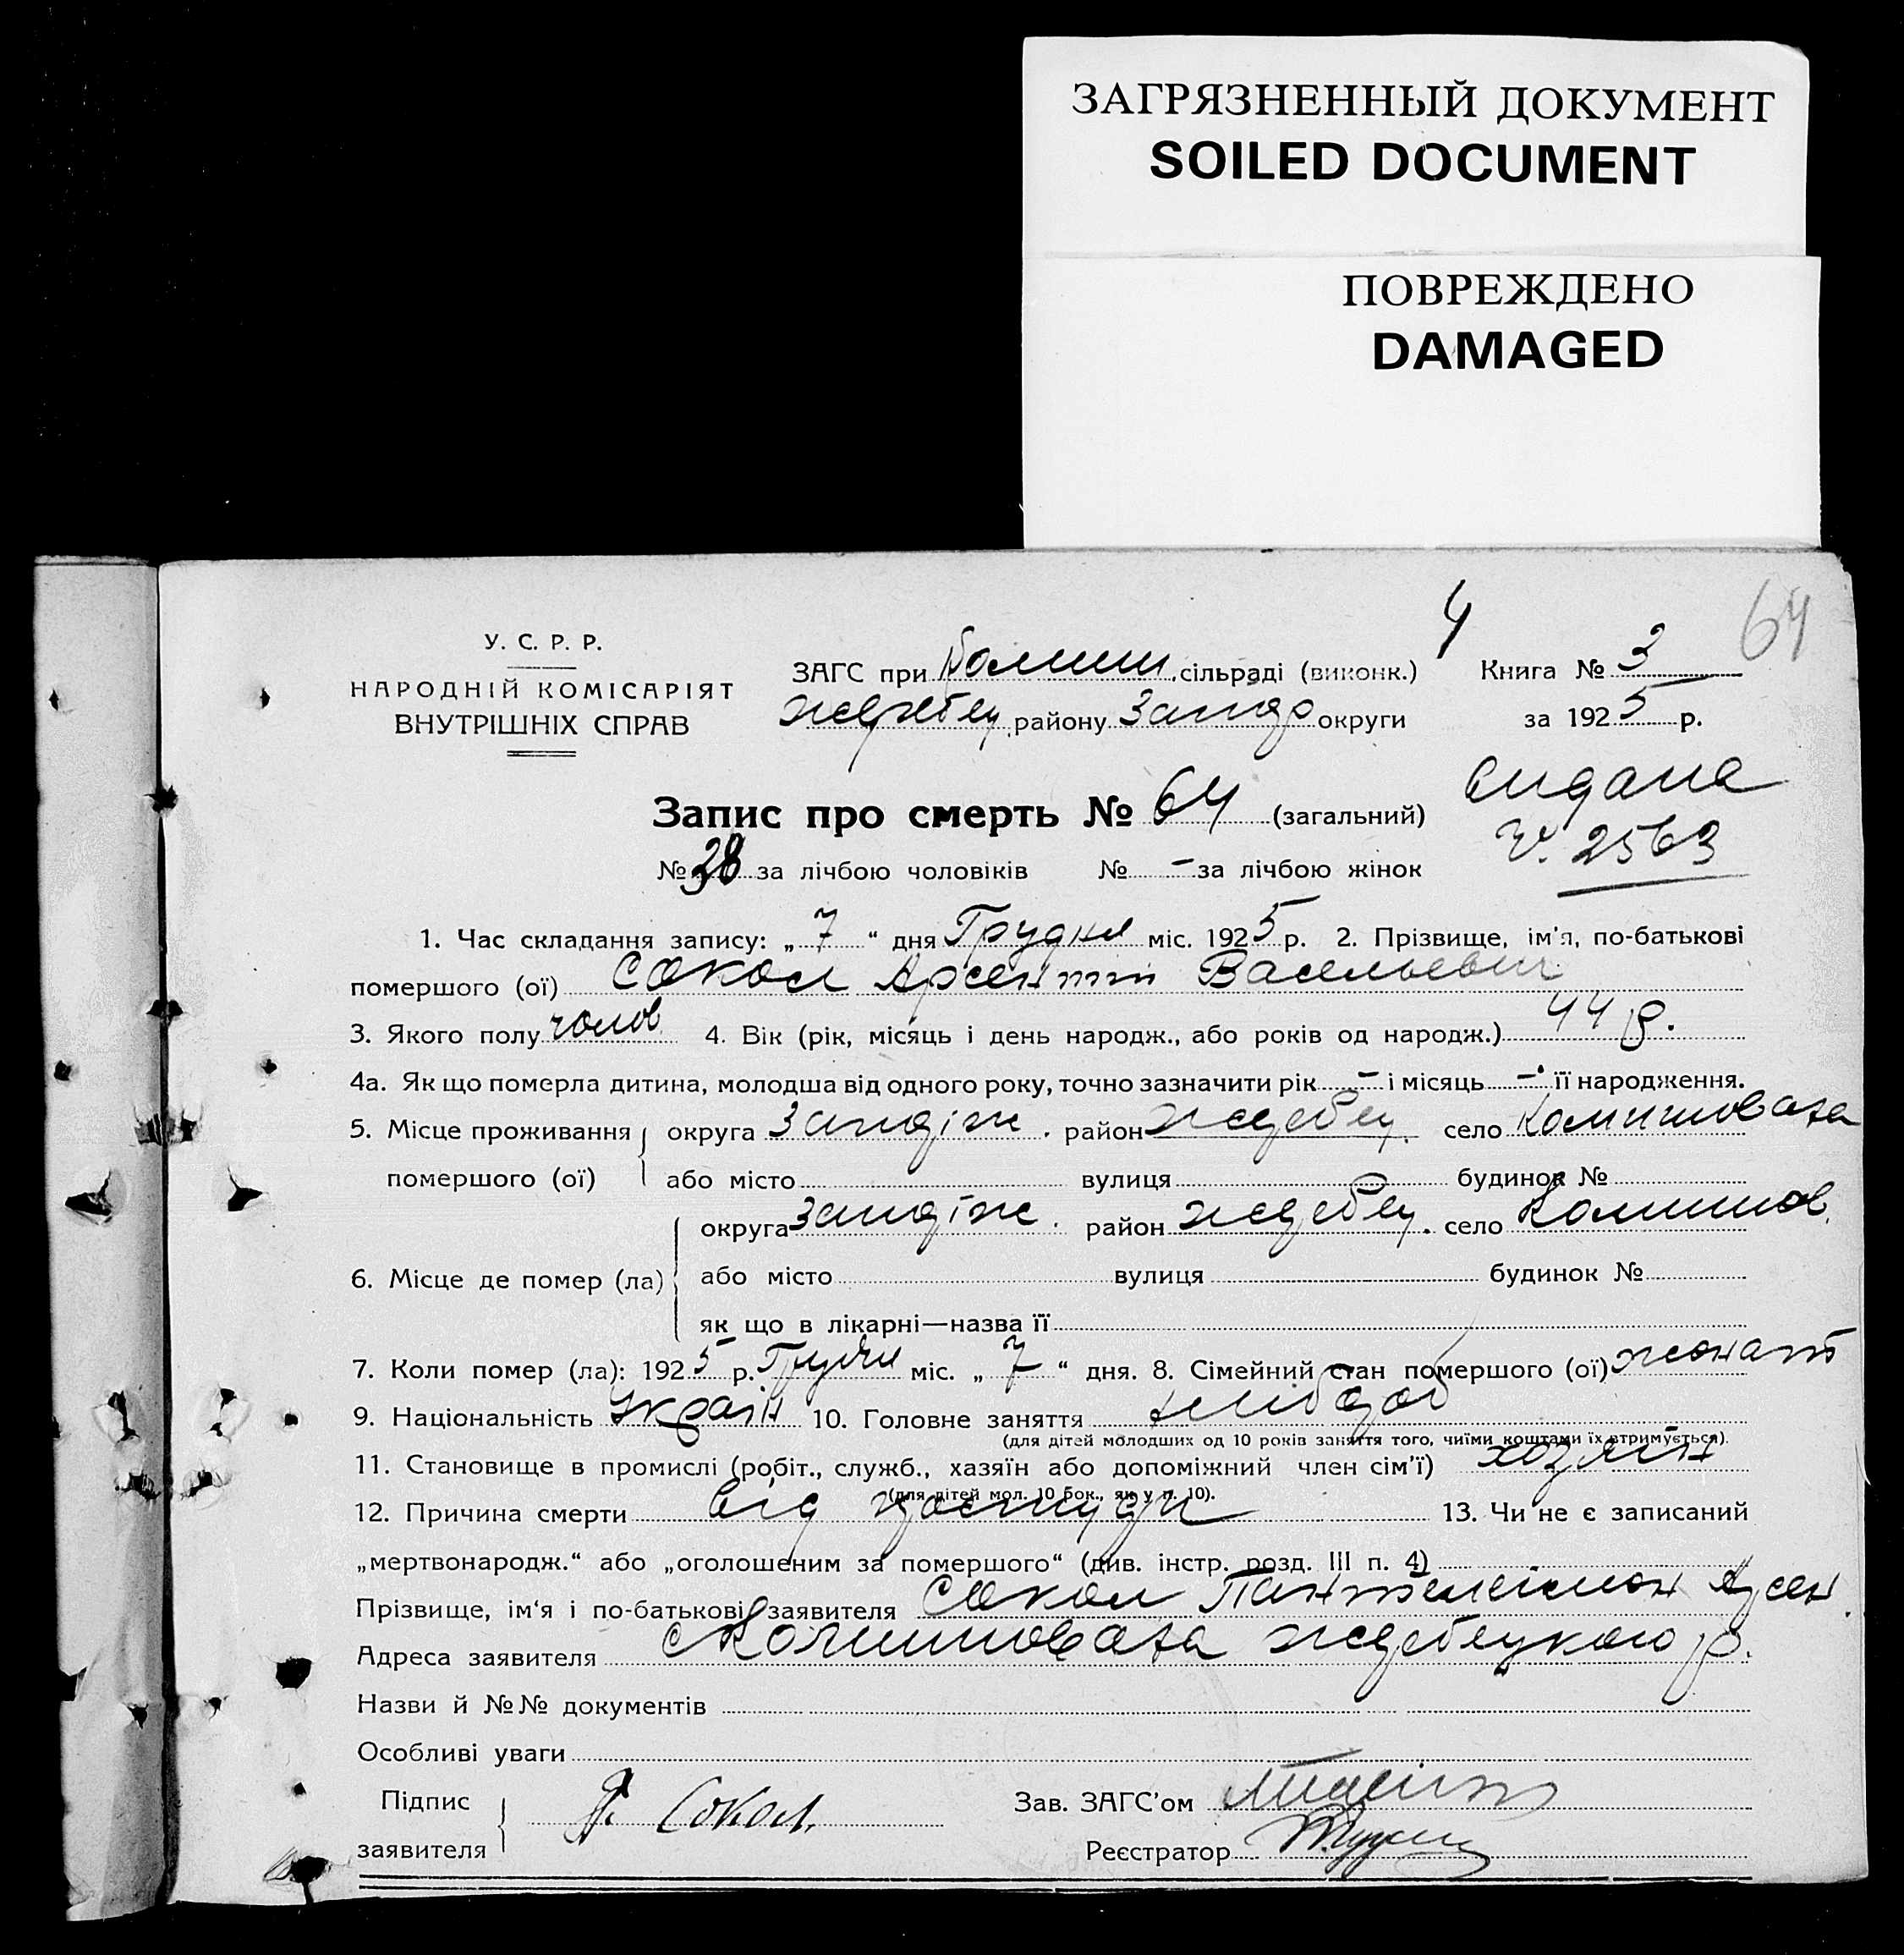 ЗАГРЯЗНЕННЫЙ ДОКУМЕНТ
SOILED DOCUMENT
ПОВРЕЖДЕНО
DAMAGED
4
64
У. С. Р. Р.
НАРОДНІЙ КОМІСАРІЯТ
ВНУТРІШНІХ СПРАВ
ЗАГС при Комиш. сільраді (виконк.)
Жеребец. району Запор округи
Книга № 3
за 1925 р.
Запис про смерть № 64 (загальний)
видана
№ 2563
№ 38 за лічбою чоловіків № – за лічбою жінок
1. Час складання запису: „7“ дня Грудня міс. 1925 р. 2. Прізвище, ім'я, по-батькові
помершого (ої) Сокол Арсентій Васельевич
3. Якого полу чолов. 4. Вік (рік, місяць і день народж., або років од народж.) 44 р.
4а. Як що померла дитина, молодша від одного року, точно зазначити рік – і місяць – її народження.
5. Місце проживання помершого (ої) округа Запоріж. район Жеребец. село Комишоваха
або місто вулиця будинок №
6. Місце де помер (ла) округа Запоріж. район Жеребец. село Комишов.
або місто вулиця будинок №
як що в лікарні—назва її
7. Коли помер (ла): 1925 р. Грудня міс. „7“ дня. 8. Сімейний стан помершого (ої) жонат
9. Національність Україн 10. Головне заняття хлібороб
(для дітей молодших од 10 років заняття того, чиїми коштами їх втримується).
11. Становище в промислі (робіт., служб., хазяїн або допоміжний член сім'ї) хозяїн
(для дітей мол. 10 рок., як у п. 10).
12. Причина смерти від простуди 13. Чи не є записаний
„мертвонародж.“ або „оголошеним за помершого“ (див. інстр. розд. III п. 4)
Прізвище, ім'я і по-батькові заявителя Сокол Пантелеімон Арсен.
Адреса заявителя с Комишоваха Жеребецкого р.
Назви й №№ документів
Особливі уваги
Підпис заявителя П. Сокол.
Зав. ЗАГС'ом
Реєстратор